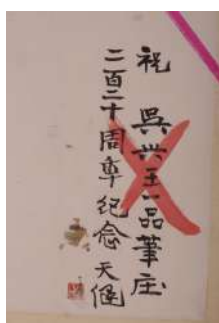 祝 吳兴王一品筆庄
二百二十周年紀念 天